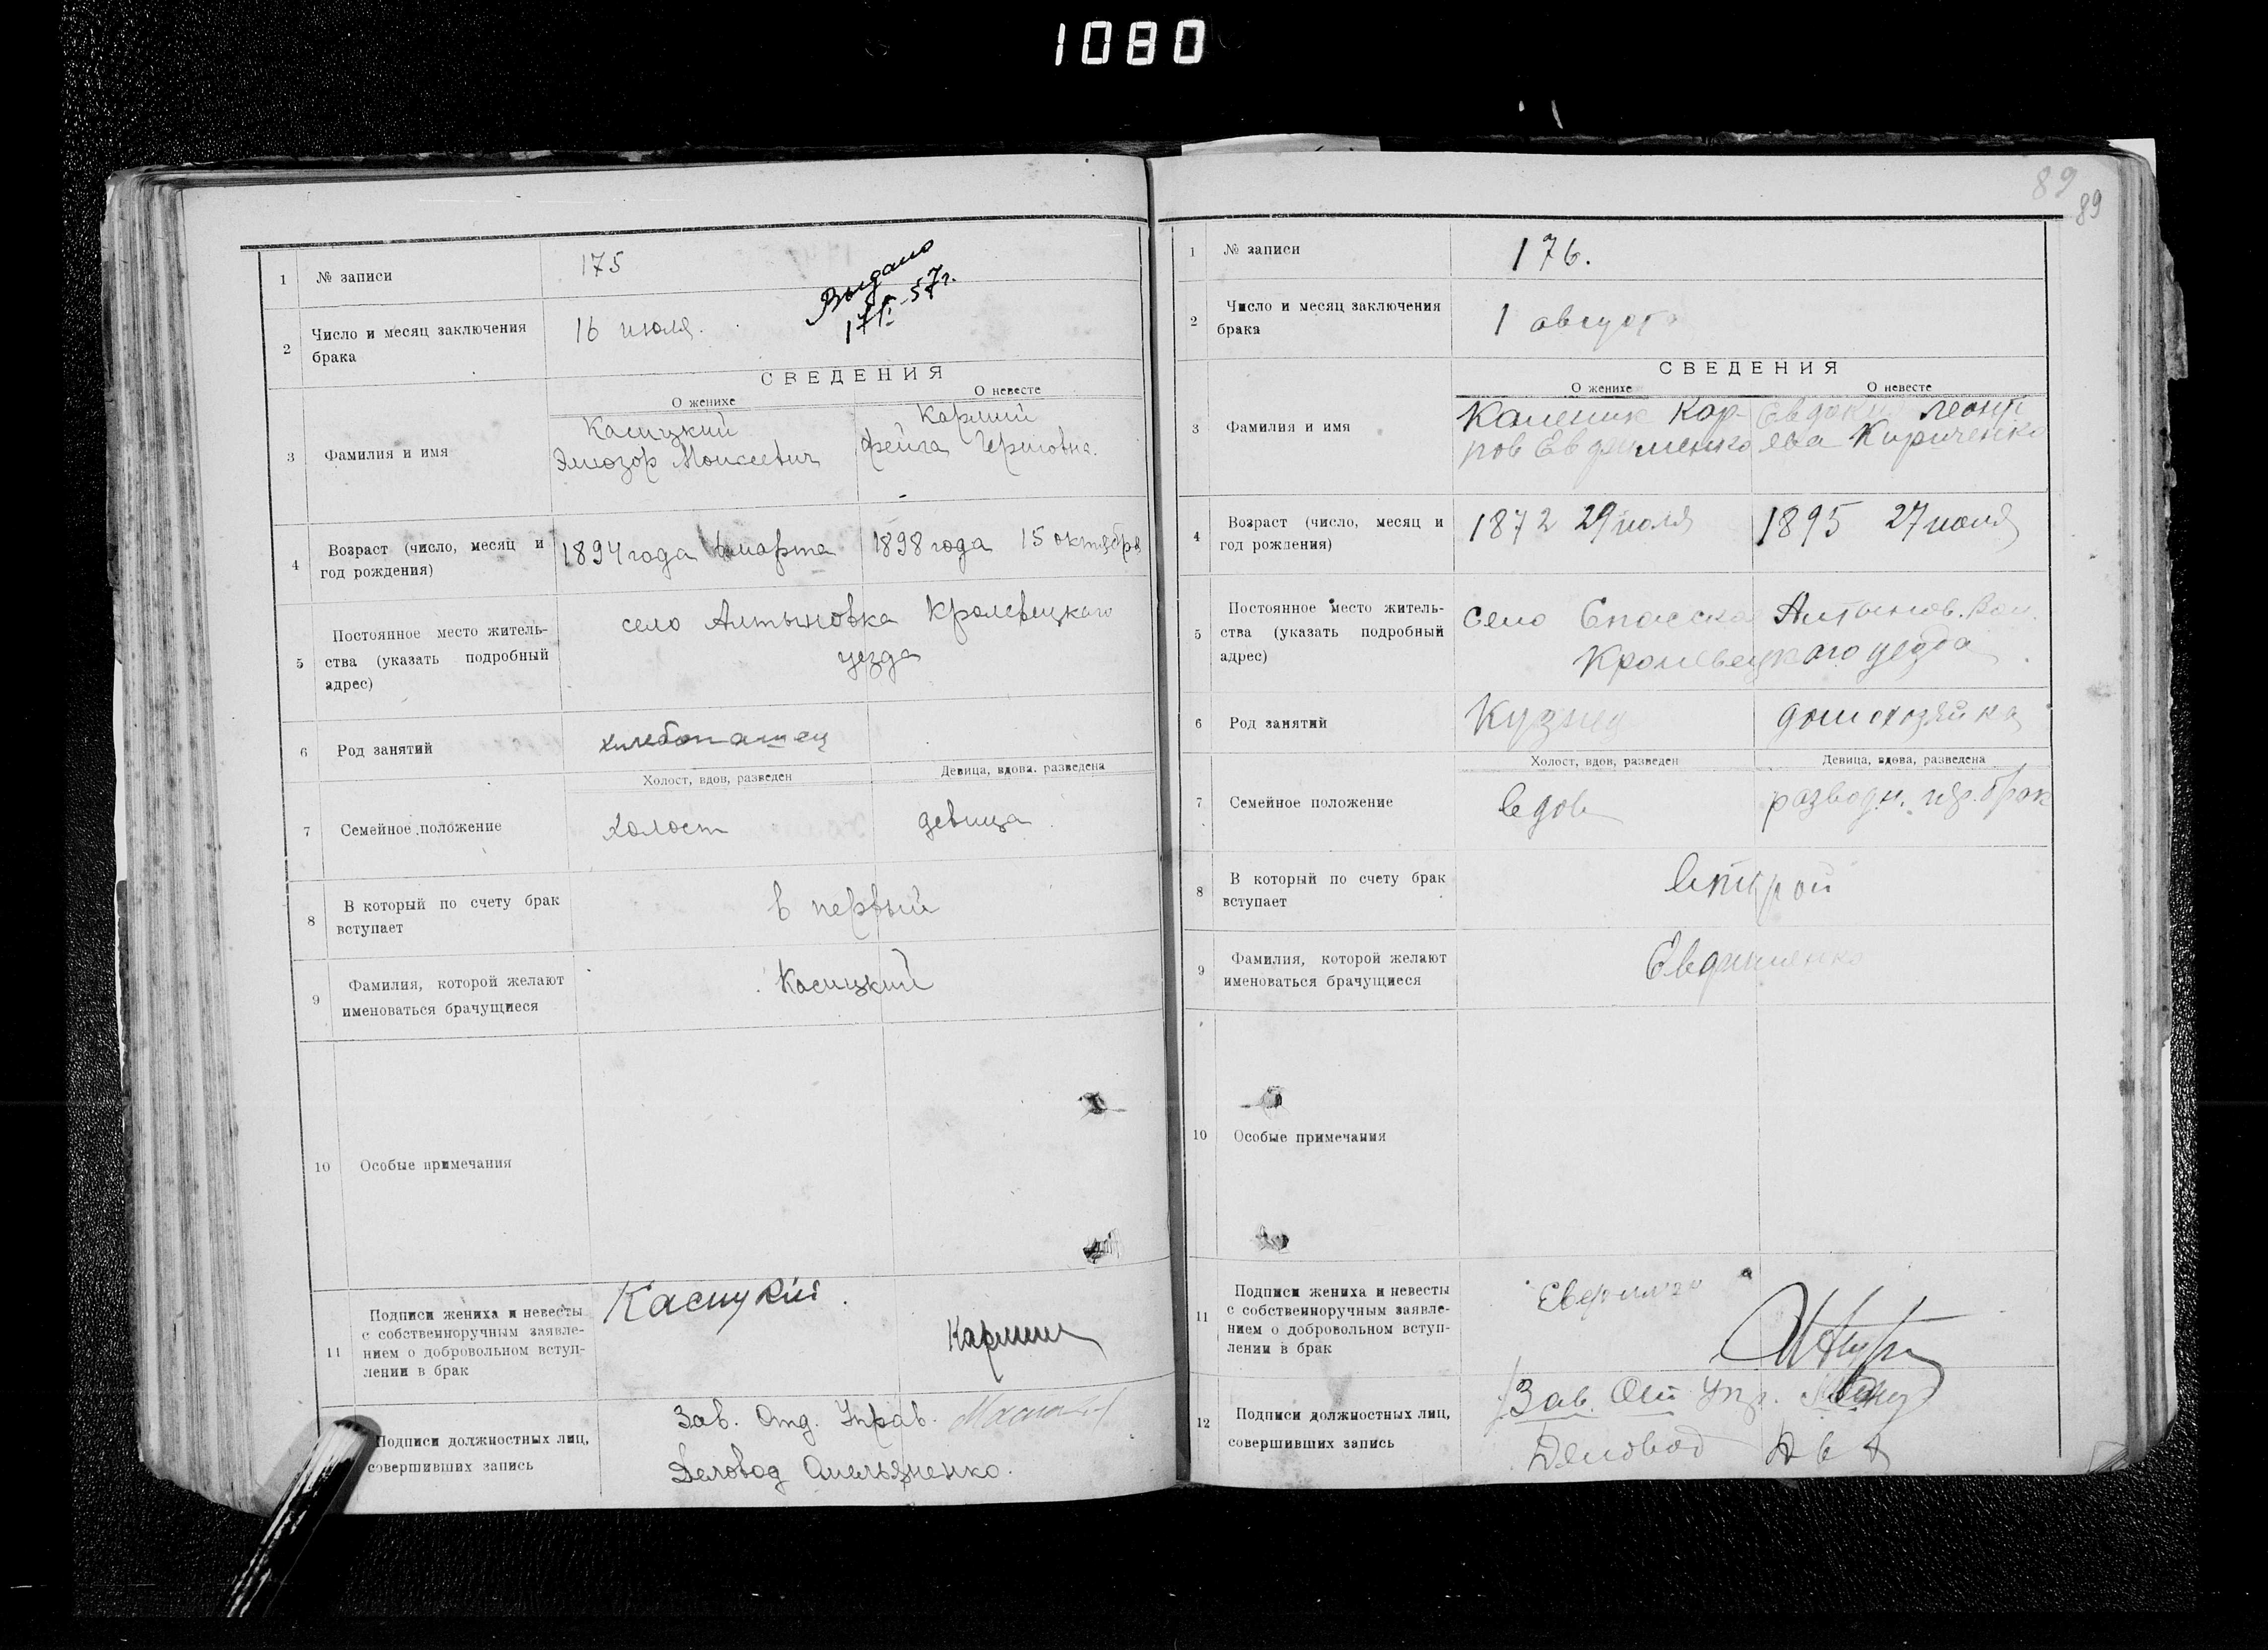 1080
1 № записи
175
Выдано
57г.
2 Число и месяц заключения
брака
16 июля.
СВЕДЕНИЯ
О женихе
О невесте
3 Фамилия и имя
Касицкий
Элиозор Моисеевич
Фейга
4 Возраст (число, месяц и
год рождения)
1894 года марта
1898 года 15 октября
5 Постоянное место житель-
ства (указать подробный
адрес)
село Алтыновка Кролевецкого
уезда
6 Род занятий
хлебопашец
Холост, вдов, разведен
Девица, вдова, разведена
7 Семейное положение
холост
девица
8 В который по счету брак
вступает
в первый
9 Фамилия, которой желают
именоваться брачущиеся
Касицкий
10 Особые примечания
11 Подписи жениха и невесты
с собственноручным заявле-
нием о добровольном вступ-
лении в брак
Касицкий
Подписи должностных лиц,
совершивших запись
Зав. Отд. Управ.
Деловод Омельяненко.
89
89
1 № записи
176.
2 Число и месяц заключения
брака
1 августа
СВЕДЕНИЯ
О женихе
О невесте
3 Фамилия и имя
Каленик Кар-
пов Евдименко
Евдокия Леонт
ева Кириченко
4 Возраст (число, месяц и
год рождения)
1872 29 июля
1895 27 июля
5 Постоянное место житель-
ства (указать подробный
адрес)
село Спасска Алтынов. Вол.
Кролевецкого уезда
6 Род занятий
Кузнец
домохозяйка
Холост, вдов, разведен
Девица, вдова, разведена
7 Семейное положение
вдов
разводн. брак
8 В который по счету брак
вступает
второй
9 Фамилия, которой желают
именоваться брачущиеся
Евдименко
10 Особые примечания
11 Подписи жениха и невесты
с собственноручным заявле-
нием о добровольном вступ-
лении в брак
12 Подписи должностных лиц,
совершивших запись
Зав. Отд Упр.
Деловод